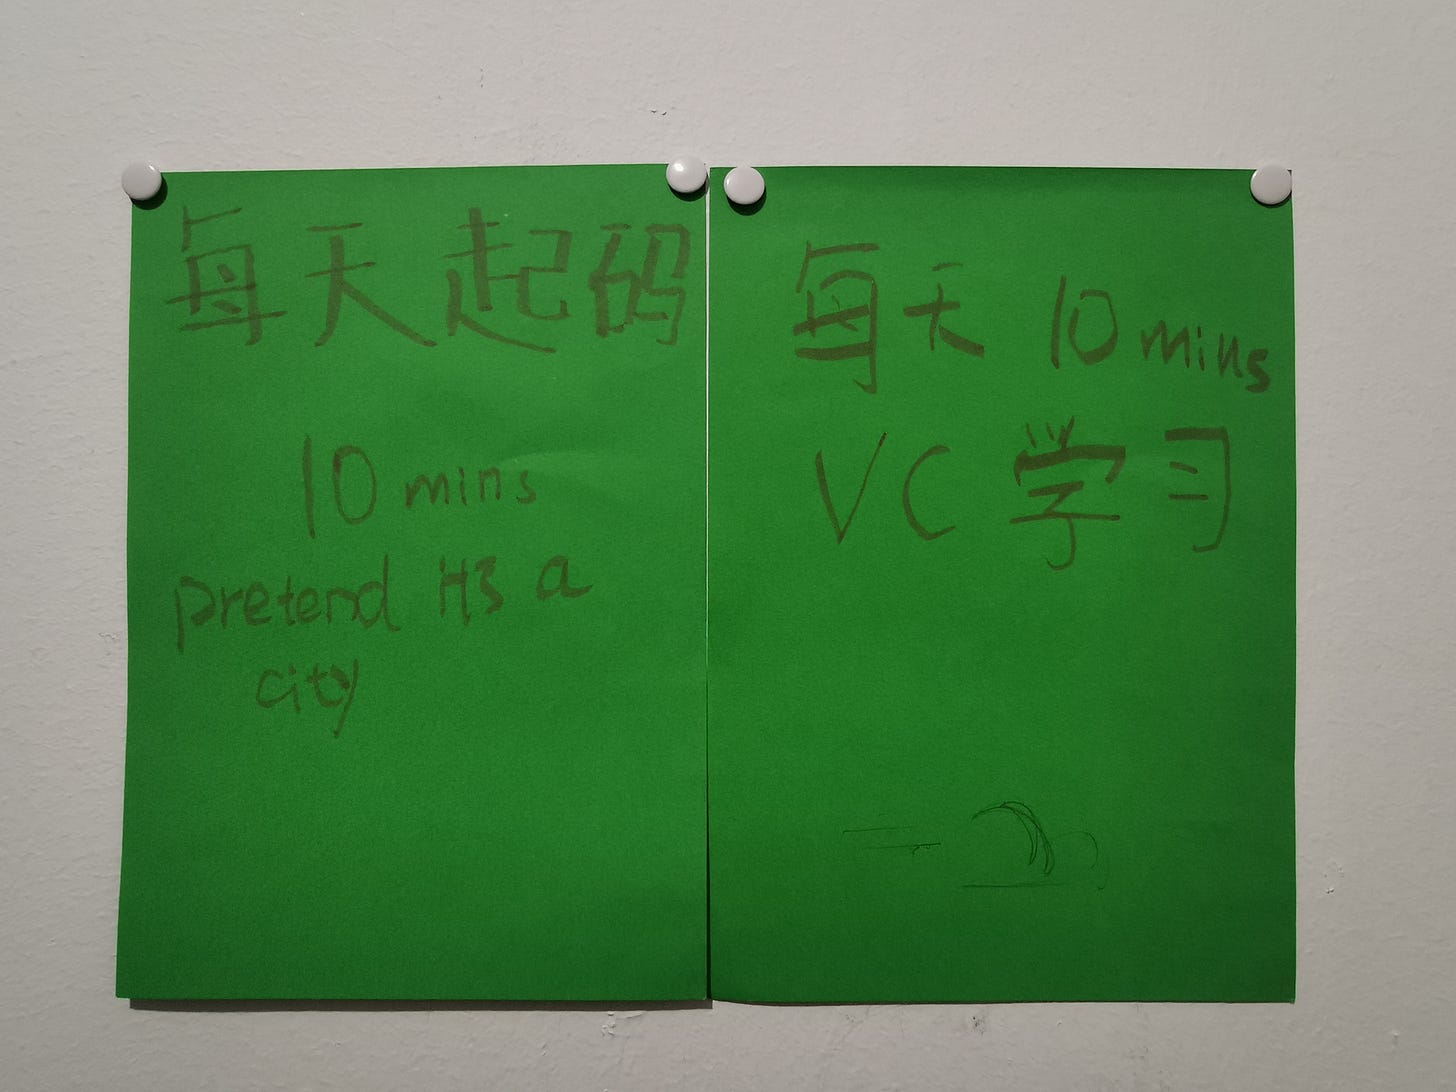 每天起码
10 mins
pretend it's a
city
每天 10 mins
VC 学习